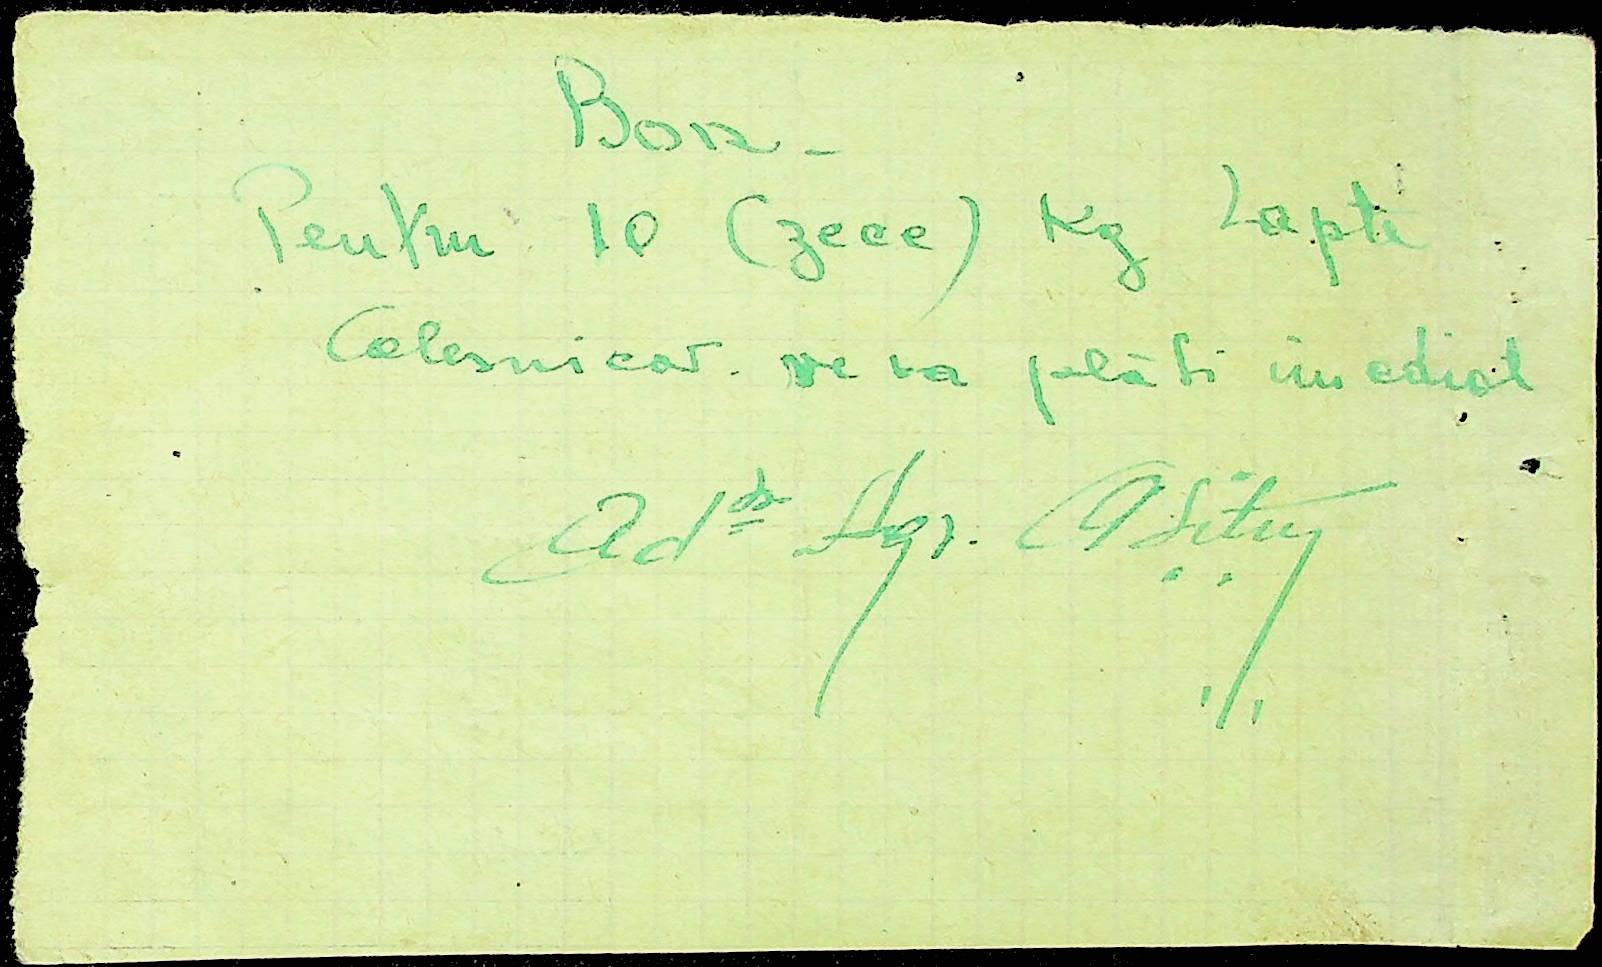 Bon -
Pentru 10 (zece) Kg Lapte
Colesnicar. se va plăti imediat